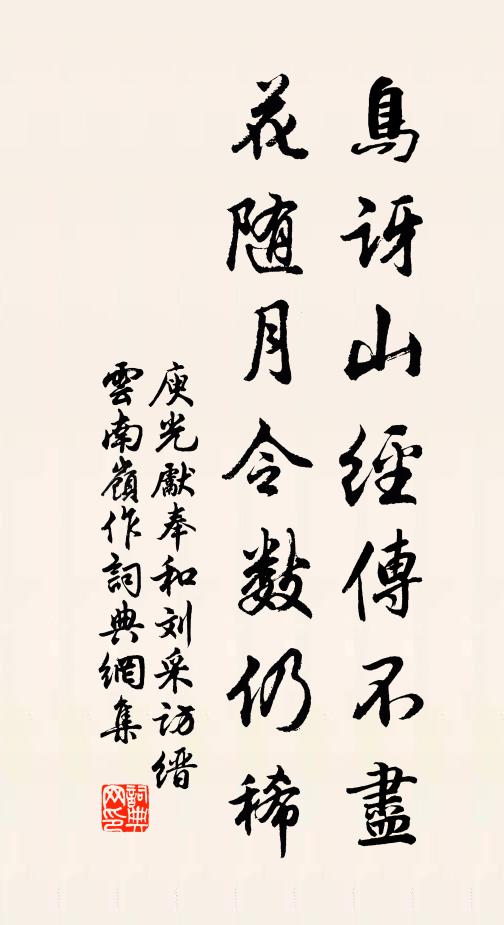 鳥訝山經傳不盡
花随月令數仍稀
庾光獻奉和刘采访缙
雲南嶺作詞典網集
詞典网印